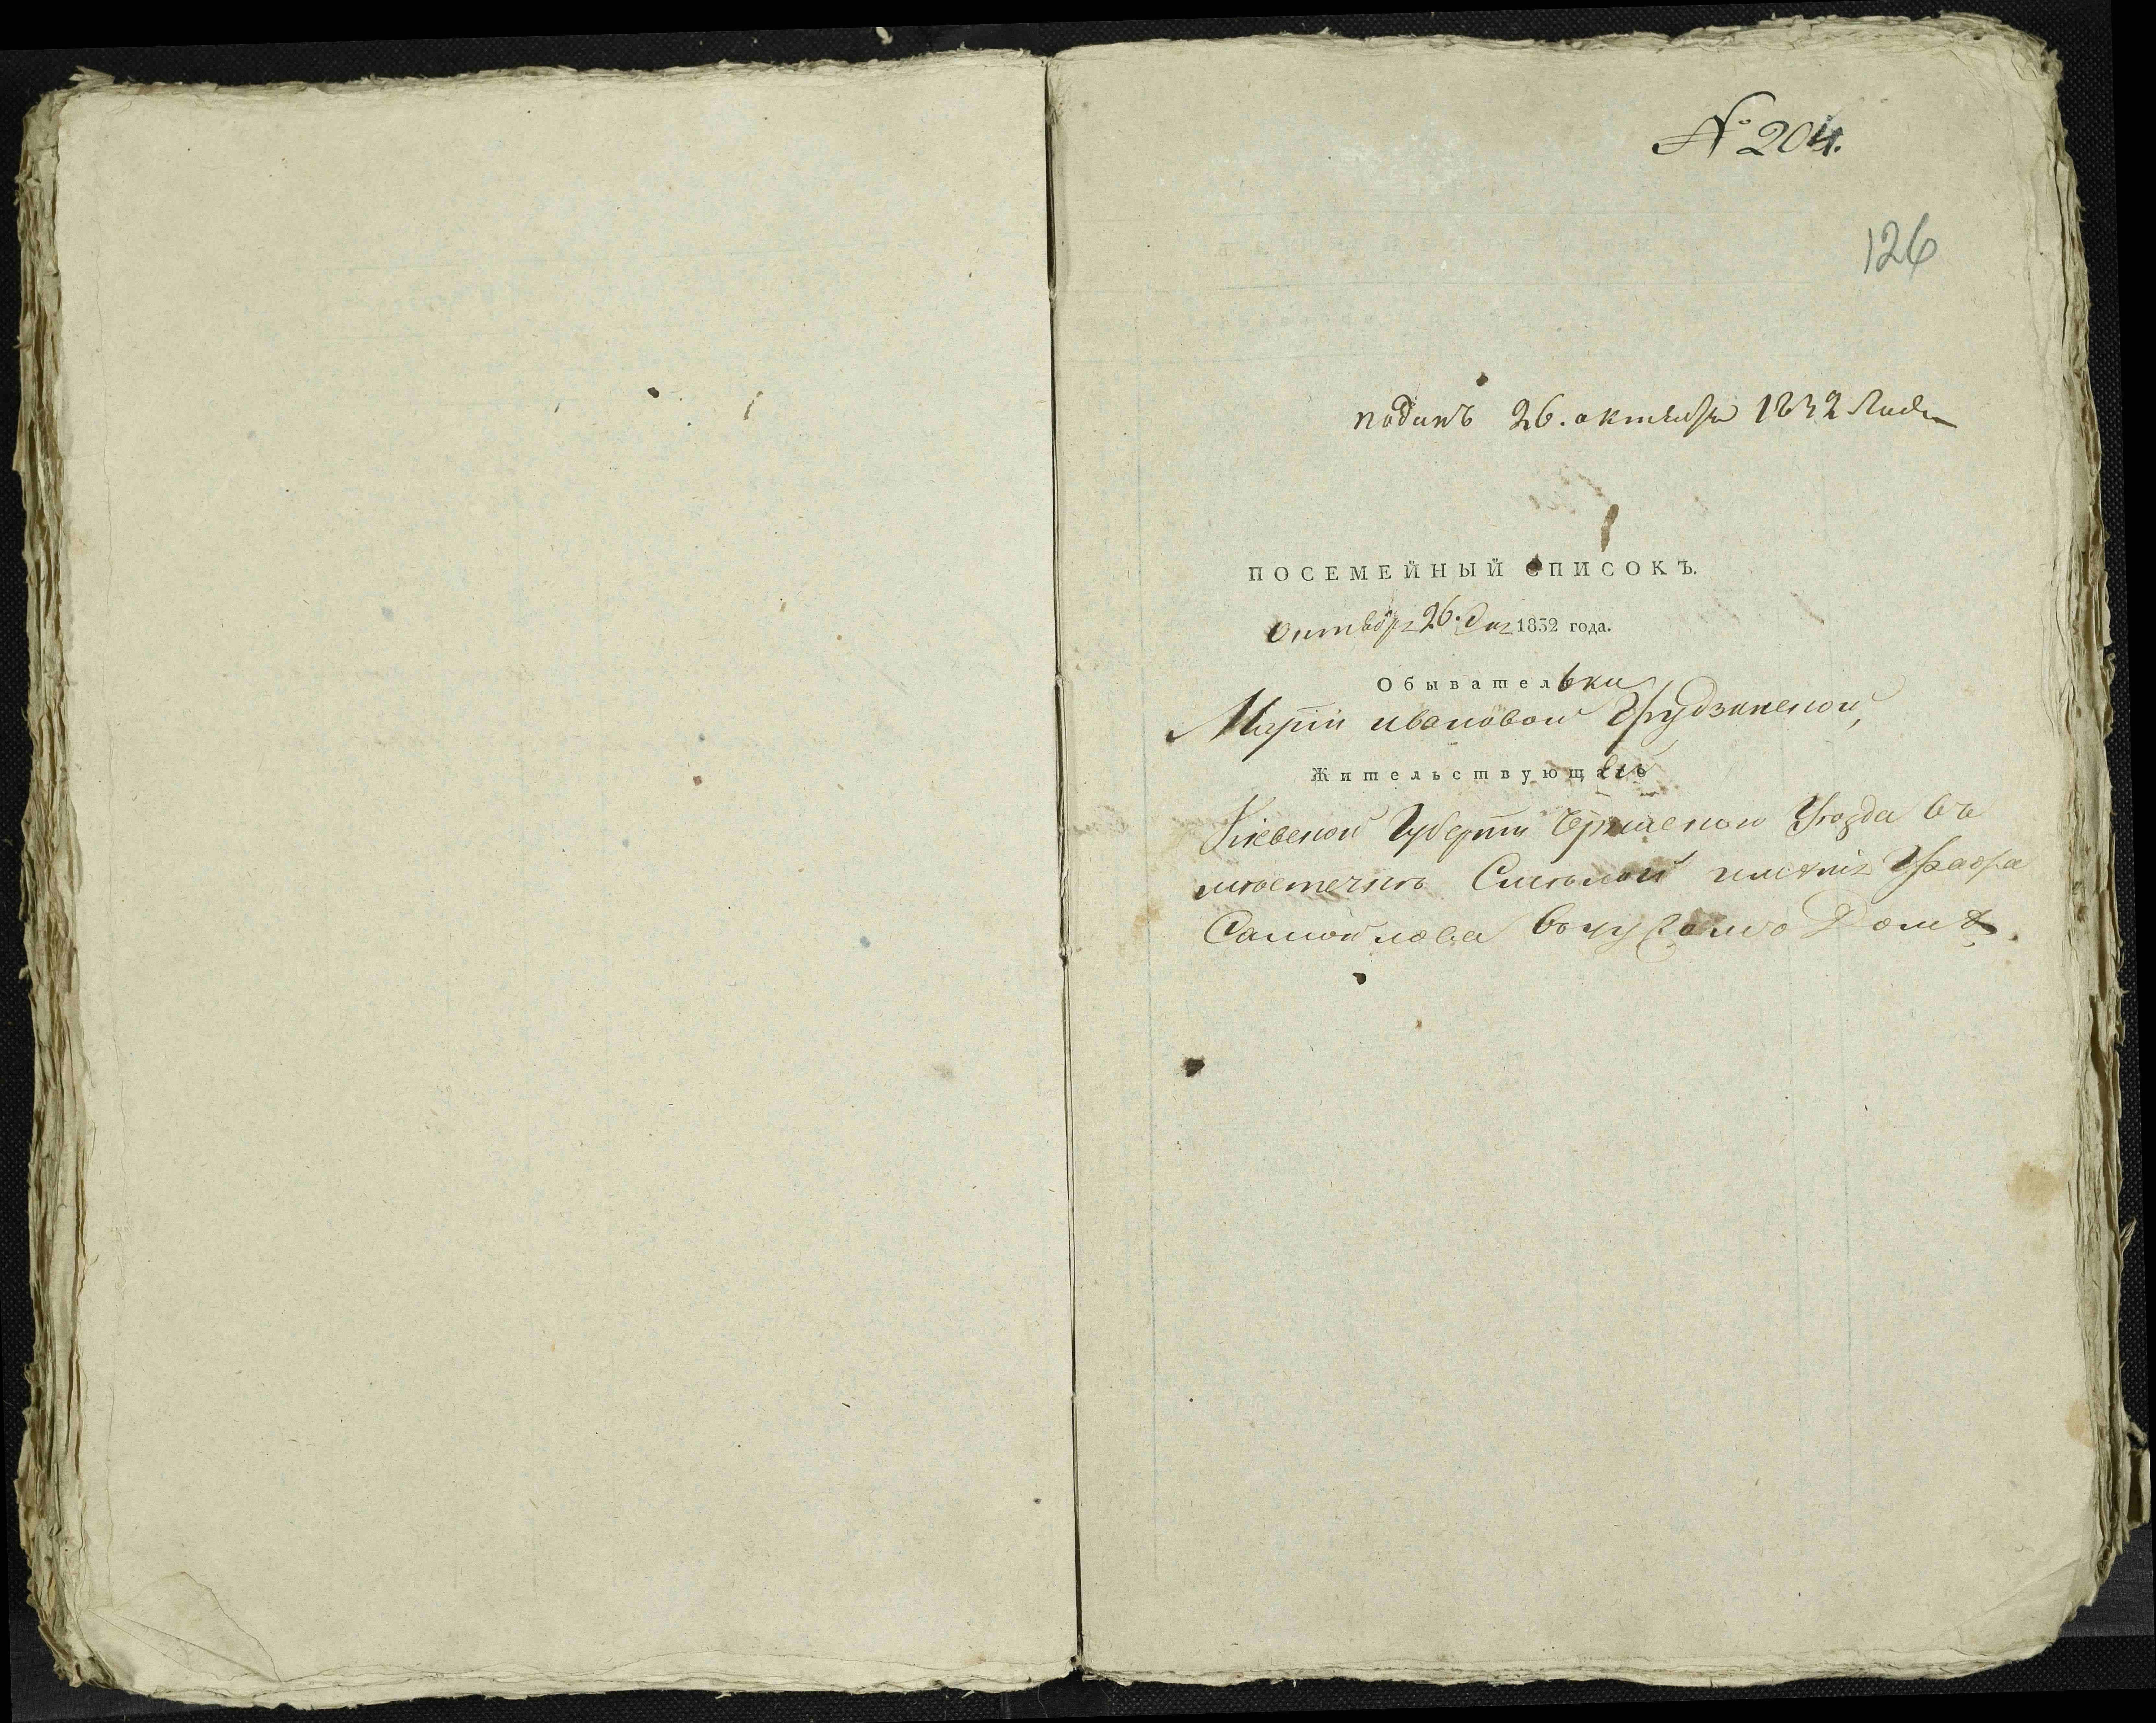 № 204.
126
поданъ 26. октября 1832 года
ПОСЕМЕЙНЫЙ СПИСОКЪ.
Октября 26. дня 1832 года.
Обывательки
Маріи Ивановой Грудзинской,
Жительствующей
Кіевской Губерніи Черкаской Уѣзда въ
мѣстечкѣ Смѣлой имѣнія Графа
Самойлова въ чужомъ Домѣ.